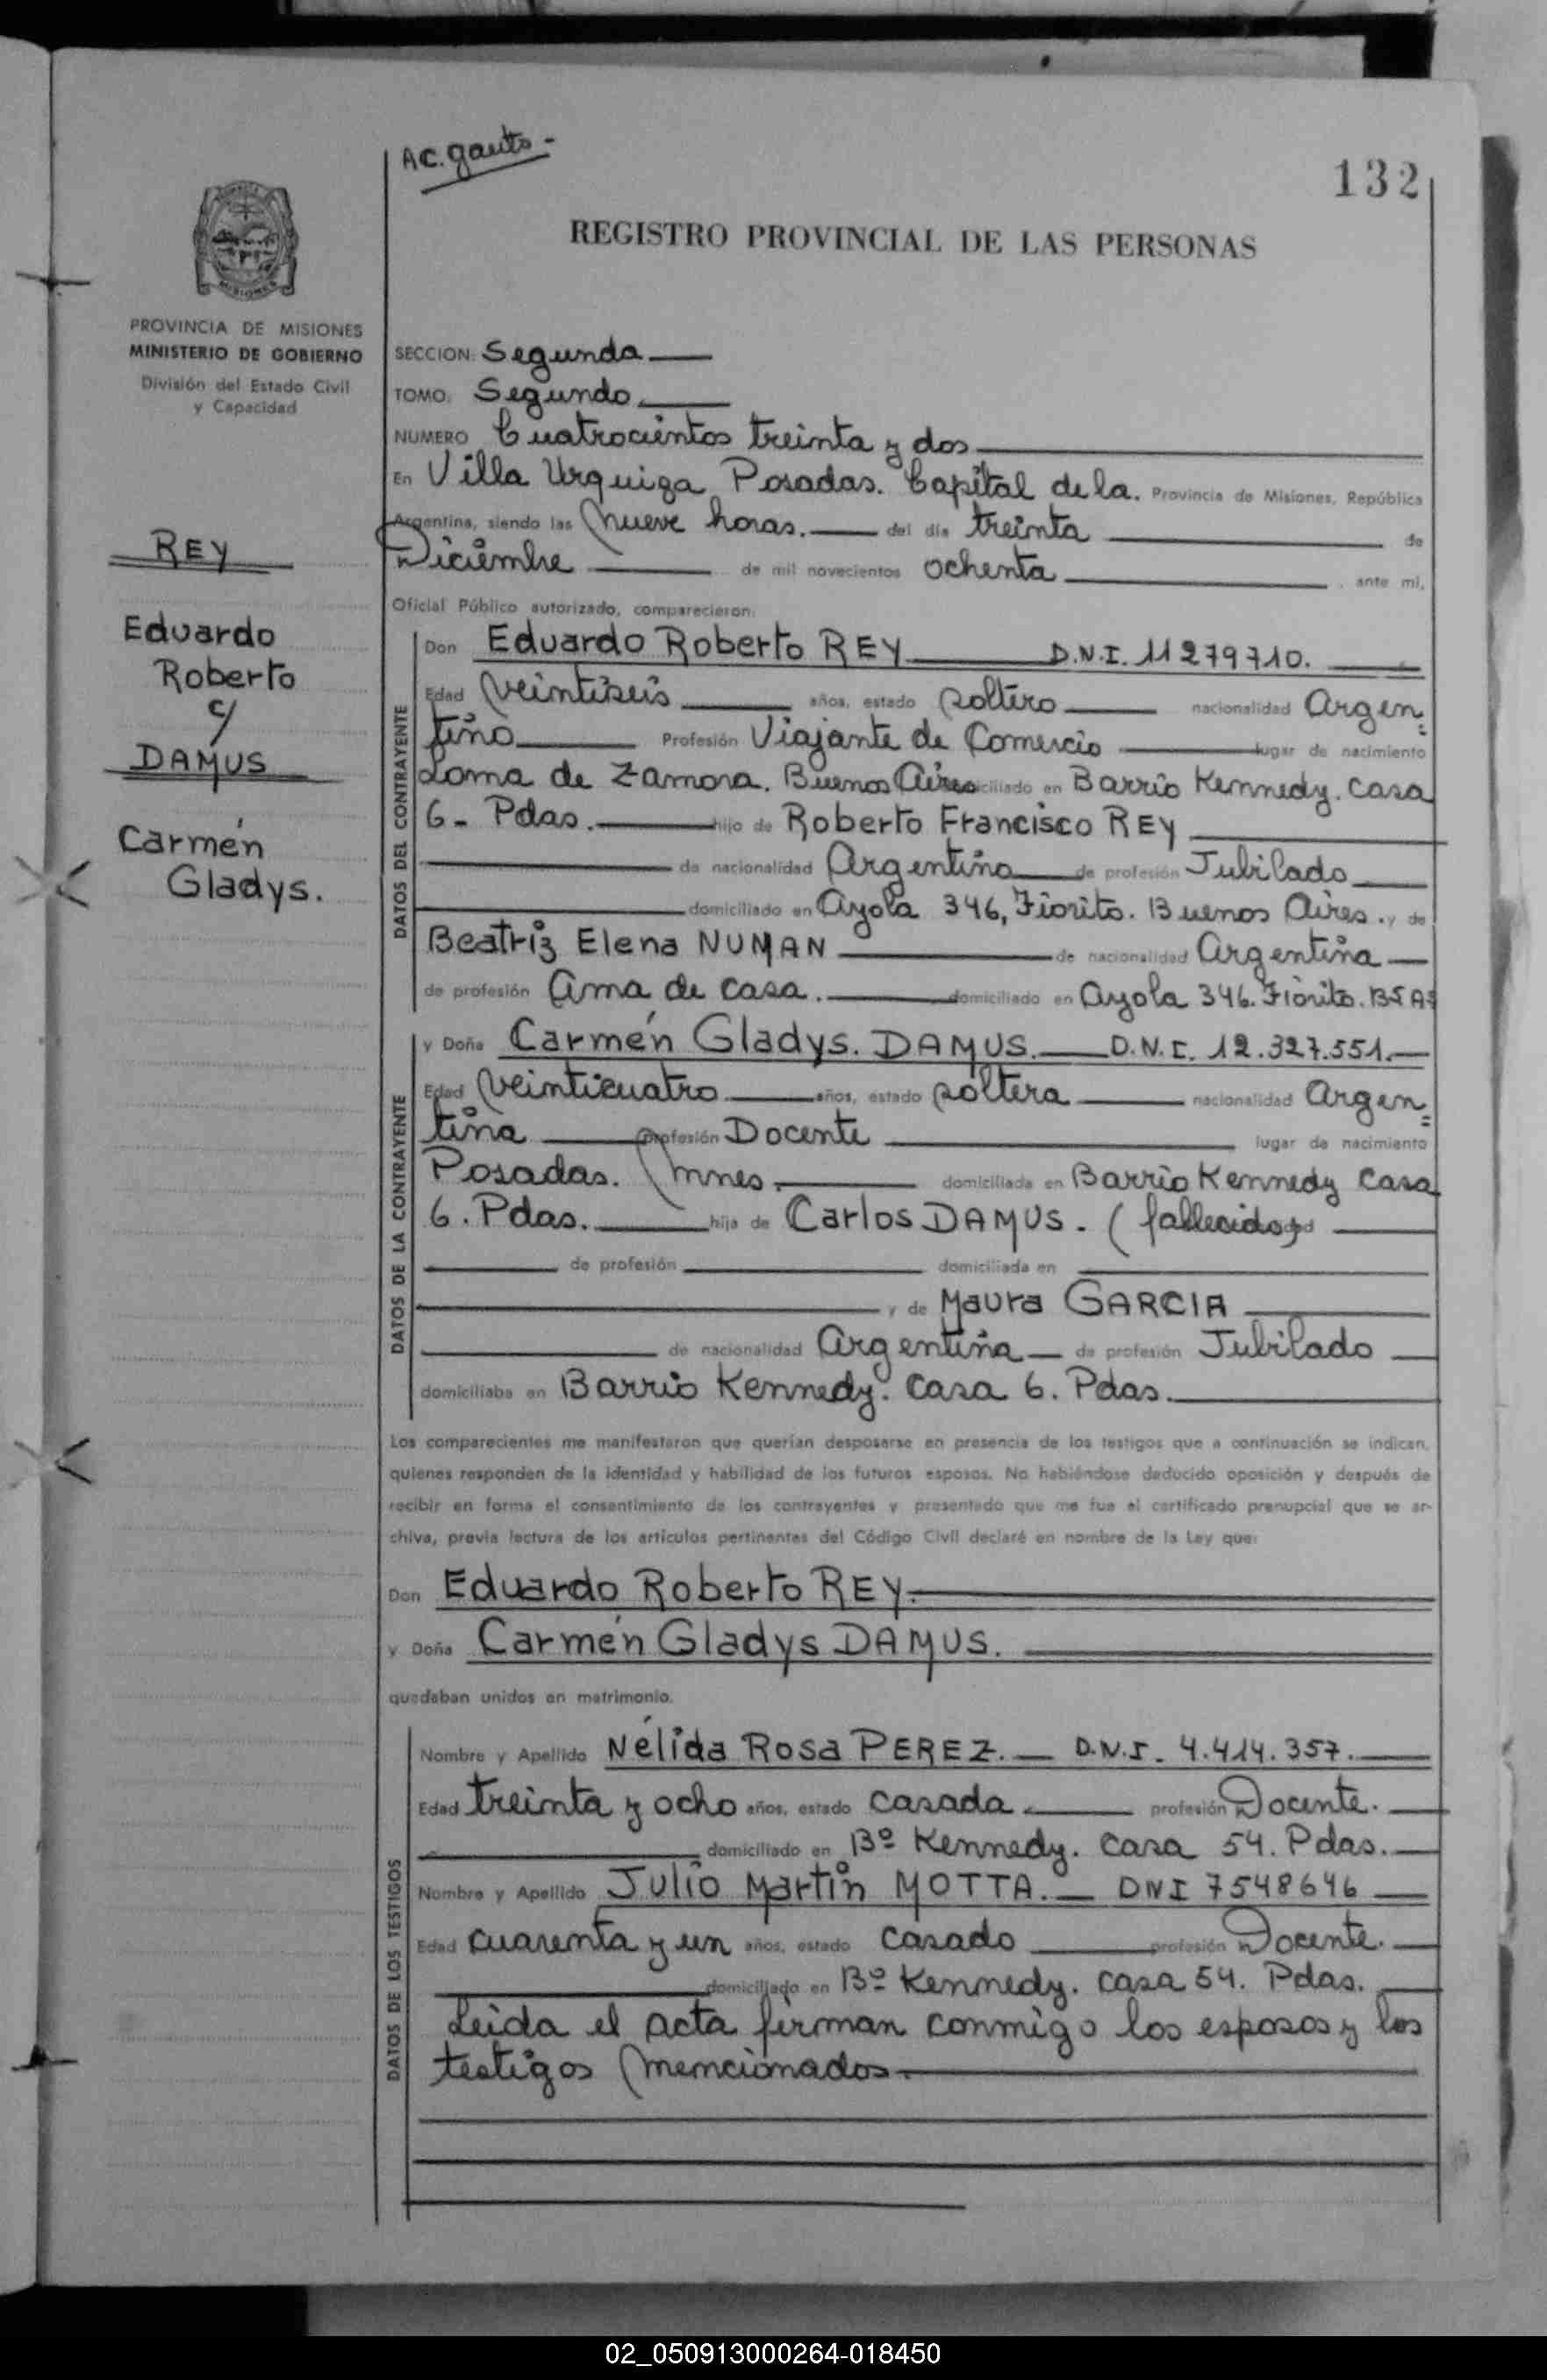 AC. gauto -
132
REGISTRO PROVINCIAL DE LAS PERSONAS
PROVINCIA DE MISIONES
MINISTERIO DE GOBIERNO
División del Estado Civil
y Capacidad
REY
Eduardo
Roberto
c/
DAMUS
Carmen
Gladys.
SECCION: Segunda
TOMO: Segundo
NUMERO Cuatrocientos treinta y dos
En Villa Urquiza Posadas. Capital de la. Provincia de Misiones, República
Argentina, siendo las nueve horas. del día treinta de
Diciembre de mil novecientos ochenta ante mi,
Oficial Público autorizado, comparecieron:
DATOS DEL CONTRAYENTE
Don Eduardo Roberto REY D.N.I. 11279710.
Edad veintiseis años, estado soltero nacionalidad Argen=
tino Profesión Viajante de Comercio lugar de nacimiento
Loma de Zamora. Buenos Aires domiciliado en Barrio Kennedy. casa
6- Pdas. hijo de Roberto Francisco REY
de nacionalidad Argentino de profesión Jubilado
domiciliado en Ayola 346, Fiorito. Buenos Aires. y de
Beatriz Elena NUMAN de nacionalidad Argentina
de profesión ama de casa. domiciliado en Ayola 346. Fiorito. BS AS
DATOS DE LA CONTRAYENTE
y Doña Carmen Gladys. DAMUS. D.N.I. 12.327.551.
Edad veinticuatro años, estado soltera nacionalidad Argen=
tina profesión Docente lugar de nacimiento
Posadas. Mnes. domiciliada en Barrio Kennedy casa
6. Pdas. hija de Carlos DAMUS. (fallecido)
de profesión domiciliada en
y de Maura GARCIA
de nacionalidad Argentina de profesión Jubilado
domiciliaba en Barrio Kennedy. casa 6. Pdas.
Los comparecientes me manifestaron que querían desposarse en presencia de los testigos que a continuación se indican,
quienes responden de la identidad y habilidad de los futuros esposos. No habiéndose deducido oposición y después de
recibir en forma el consentimiento de los contrayentes y presentado que me fue el certificado prenupcial que se ar-
chiva, previa lectura de los artículos pertinentes del Código Civil declaré en nombre de la Ley que:
Don Eduardo Roberto REY.
y Doña Carmen Gladys DAMUS.
quedaban unidos en matrimonio.
DATOS DE LOS TESTIGOS
Nombre y Apellido Nélida Rosa PEREZ. D.N.I. 4.414.357.
Edad treinta y ocho años, estado casada profesión Docente.
domiciliado en Bº Kennedy. casa 54. Pdas.
Nombre y Apellido Julio Martin MOTTA. DNI 7548646
Edad cuarenta y un años, estado casado profesión Docente.
domiciliado en Bº Kennedy. casa 54. Pdas.
Leida el acta firman conmigo los esposos y los
testigos mencionados.
02_050913000264-018450